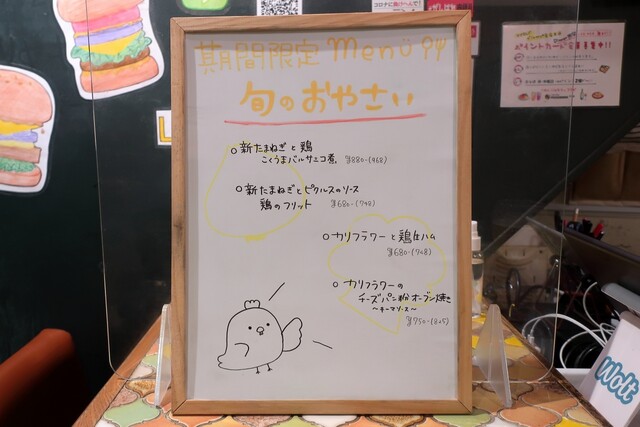 期間限定 menü
旬のおやさい
○新たまねぎと鶏
こくうまバルサミコ煮 ¥880-(968)
○新たまねぎとピクルスのソース
鶏のフリット ¥680-(748)
○カリフラワーと鶏生ハム
¥680-(748)
○カリフラワーの
チーズパン粉オーブン焼き
～キーマソース～
¥750-(825)
ポイントカード会員募集中!!
Wolt